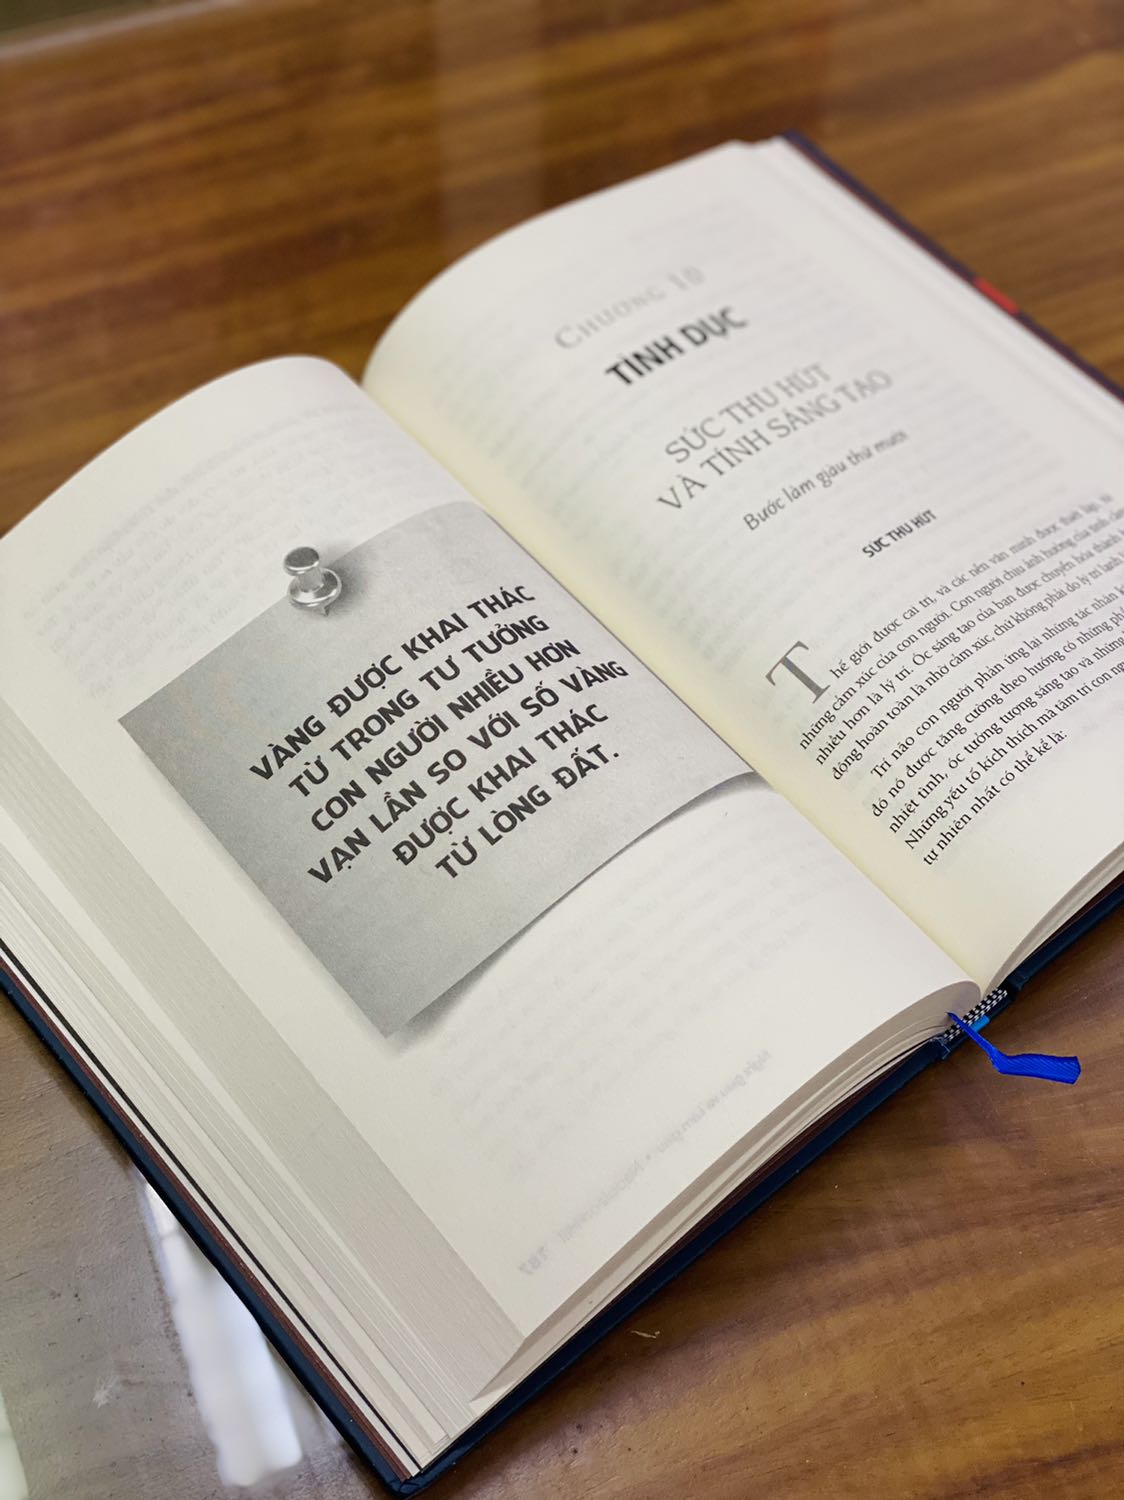 VÀNG ĐƯỢC KHAI THÁC
TỪ TRONG TƯ TƯỞNG
CON NGƯỜI NHIỀU HƠN
VẠN LẦN SO VỚI SỐ VÀNG
ĐƯỢC KHAI THÁC
TỪ LÒNG ĐẤT.
CHƯƠNG 10
TÌNH DỤC
SỨC THU HÚT
VÀ TÍNH SÁNG TẠO
Bước làm giàu thứ mười
SỨC THU HÚT
Thế giới được cai trị, và các nền văn minh được thiết lập, từ
những cảm xúc của con người. Con người chịu ảnh hưởng của tình cảm
nhiều hơn là lý trí. Óc sáng tạo của bạn được chuyển hóa thành
động hoàn toàn là nhờ cảm xúc, chứ không phải do lý trí lạnh
Trí não con người phản ứng lại những tác nhân
đó nó được tăng cường theo hướng có những
nhiệt tình, óc tưởng tượng sáng tạo và những
Những yếu tố kích thích mà tâm trí con
tự nhiên nhất có thể kể là: